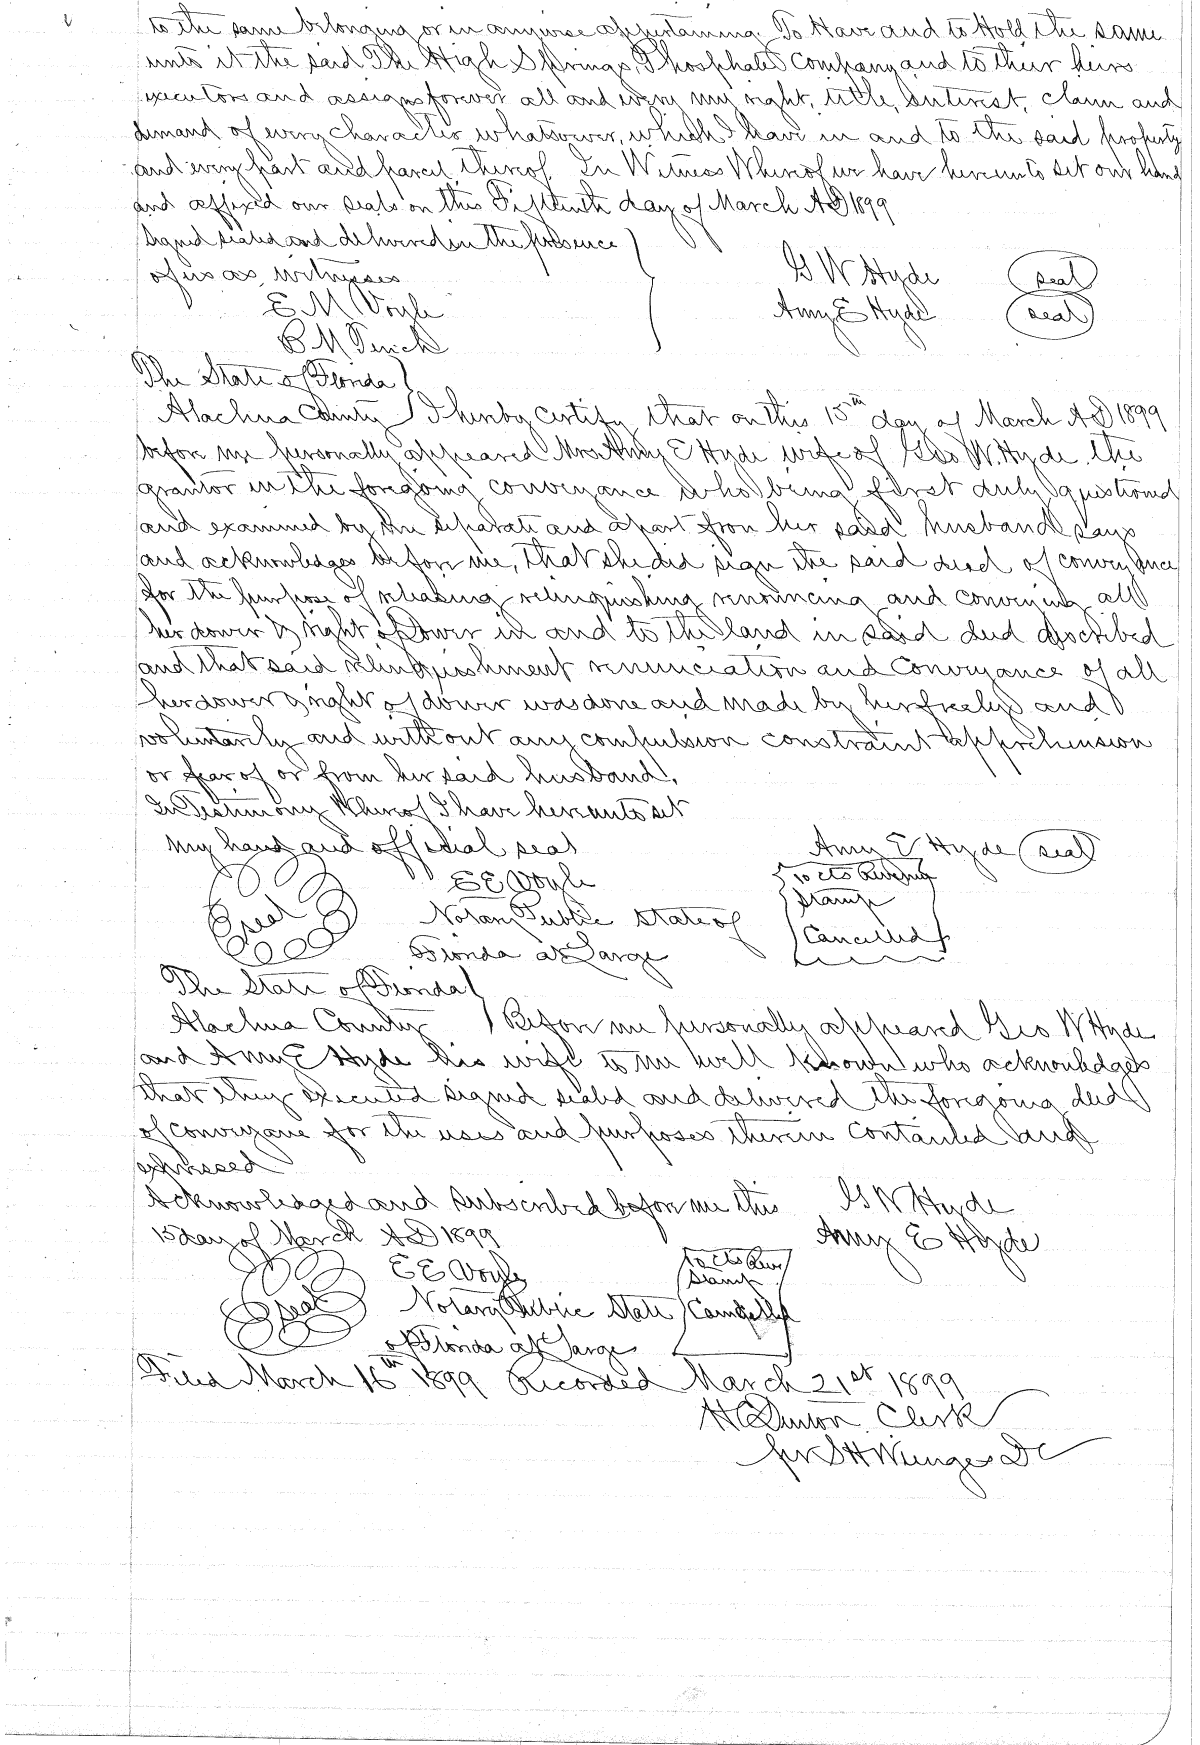 to the same belonging or in anywise appertaining. To Have and to Hold the same
unto it the said The High Springs Phosphate Company and to their heirs
executors and assigns forever all and every my right, title, interest, claim and
demand of every character whatsoever, which I have in and to the said property
and every part and parcel thereof. In Witness Whereof we have hereunto set our hand
and affixed our seals on this Fifteenth day of March AD 1899
Signed sealed and delivered in the presence
of us as witnesses
G W Hyde seal
E M Voyle Amy E Hyde seal
The State of Florida
Alachua County I hereby certify that on this 15th day of March AD 1899
before me personally appeared Mrs Amy E Hyde wife of Geo W. Hyde the
grantor in the foregoing conveyance who being first duly questioned
and examined by me separate and apart from her said husband says
and acknowledges before me, that she did sign the said deed of conveyance
for the purpose of releasing relinquishing renouncing and conveying all
her dower & right of Dower in and to the land in said deed described
and that said relinquishment renunciation and conveyance of all
her dower & right of dower was done and made by her freely and
voluntarily and without any compulsion constraint apprehension
or fear of or from her said husband.
In Testimony Whereof I have hereunto set
my hand and official seal
Amy E Hyde seal
Seal E E Voyle 10 cts Revenue
Notary Public State of Stamp
Florida at Large Cancelled
The State of Florida
Alachua County Before me personally appeared Geo W Hyde
and Amy E Hyde his wife to me well known who acknowledges
that they executed signed sealed and delivered the foregoing deed
of conveyane for the uses and purposes therein contained and
expressed
Acknowledged and subscribed before me this G W Hyde
15 day of March AD 1899 Amy E Hyde
Seal E E Voyle 10 cts Rev Stamp
Notary Public State Cancelled
of Florida at Large
Filed March 16th 1899 Recorded March 21st 1899
Clerk
DC